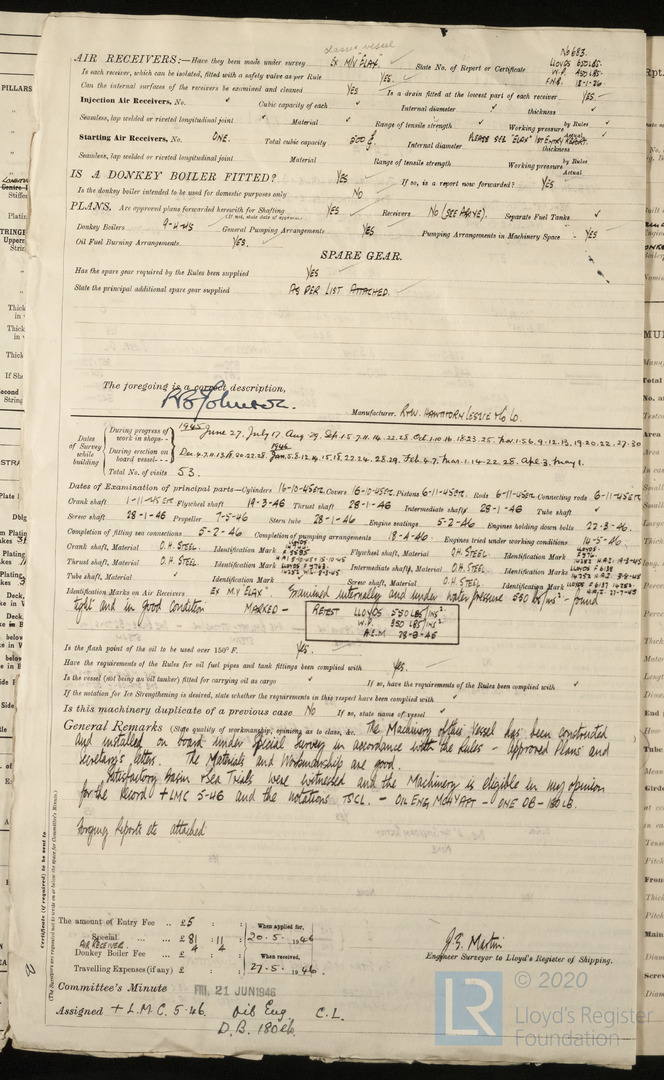 classed vessel
AIR RECEIVERS:—Have they been made under survey Ex M/V "ELAX". State No. of Report or Certificate No 683. LLOYDS 650 LBS. W.P. 450 LBS.
Is each receiver, which can be isolated, fitted with a safety valve as per Rule YES.
Can the internal surfaces of the receivers be examined and cleaned YES Is a drain fitted at the lowest part of each receiver YES.
Injection Air Receivers, No. Cubic capacity of each Internal diameter thickness
Seamless, lap welded or riveted longitudinal joint Material Range of tensile strength Working pressure by Rules Actual
Starting Air Receivers, No. ONE. Total cubic capacity Internal diameter PLEASE SEE "ELAX" 1ST ENTRY REPORT. thickness
Seamless, lap welded or riveted longitudinal joint Material Range of tensile strength Working pressure by Rules Actual
IS A DONKEY BOILER FITTED? YES If so, is a report now forwarded? YES
Is the donkey boiler intended to be used for domestic purposes only No
PLANS. Are approved plans forwarded herewith for Shafting YES Receivers No (SEE ABOVE). Separate Fuel Tanks
(If not, state date of approval)
Donkey Boilers 9-4-45 General Pumping Arrangements YES Pumping Arrangements in Machinery Space YES
Oil Fuel Burning Arrangements. YES.
SPARE GEAR.
Has the spare gear required by the Rules been supplied YES
State the principal additional spare gear supplied AS PER LIST ATTACHED.
The foregoing is a correct description,
Manufacturer. R & W. HAWTHORN LESLIE & Co Lo.
Dates of Survey while building
During progress of work in shops-- 1945 June 27, July 17, Aug 29, Sep. 1.5.7.11.14.22.28. Oct. 1.10.16.18.23.25. Nov. 1.5.6.9.12.13.19.20.22.27.30
During erection on board vessel--- Dec 4.7.11.13.18.20.22.28. 1946 Jan. 5.8.12.14.15.18.22.24.28.29. Feb 4.7. Mar. 1.14.22.28. Apl. 3. May 1.
Total No. of visits 53.
Dates of Examination of principal parts—Cylinders 16-10-45 etc. Covers 16-10-45 etc. Pistons 6-11-45 etc. Rods 6-11-45 etc. Connecting rods 6-11-45 etc
Crank shaft 1-11-45 etc Flywheel shaft 19-3-46 Thrust shaft 28-1-46 Intermediate shafts 28-1-46 Tube shaft
Screw shaft 28-1-46 Propeller 7-5-46 Stern tube 28-1-46 Engine seatings 5-2-46 Engines holding down bolts 22-3-46.
Completion of fitting sea connections 5-2-46 Completion of pumping arrangements 18-4-46 Engines tried under working conditions 14-5-46
Crank shaft, Material O.H. STEEL Identification Mark Flywheel shaft, Material O.H. STEEL. Identification Mark
Thrust shaft, Material O.H. STEEL. Identification Mark Intermediate shafts, Material O.H. STEEL Identification Marks
Tube shaft, Material Identification Mark Screw shaft, Material O.H. STEEL Identification Mark
Identification Marks on Air Receivers EX M.V "ELAX". Examined internally and under water pressure 550 lbs/ins² - found
tight and in good condition MARKED — RETEST LLOYDS 550 LBS/INS².
W.P. 350 LBS/INS².
A.E.M 28-3-45
Is the flash point of the oil to be used over 150° F. YES.
Have the requirements of the Rules for oil fuel pipes and tank fittings been complied with YES.
Is the vessel (not being an oil tanker) fitted for carrying oil as cargo If so, have the requirements of the Rules been complied with
If the notation for Ice Strengthening is desired, state whether the requirements in this respect have been complied with
Is this machinery duplicate of a previous case No If so, state name of vessel
General Remarks (State quality of workmanship, opinions as to class, &c. The Machinery of this Vessel has been constructed
and installed on board under Special Survey in accordance with the Rules - Approved Plans and
Secretary's letters. The Materials and Workmanship are good.
Satisfactory Basin & Sea Trials were witnessed and the Machinery is eligible in my opinion
for the Record + LMC 5-46 and the notations TSCL. - OIL ENG. MCHY AFT - ONE DB - 180 LB.
Forging Reports etc attached
Certificate (if required) to be sent to
(The Surveyors are requested not to write on or below the space for Committee's Minute.)
The amount of Entry Fee .. £5 : : When applied for,
Special ... ... £ 81 : 11 : 20.5.1946
AIR RECEIVER 4 4
Donkey Boiler Fee ... £ : : When received,
Travelling Expenses (if any) £ : : 27.5.1946.
J.E. Martin
Engineer Surveyor to Lloyd's Register of Shipping.
Committee's Minute FRI. 21 JUN 1946
Assigned + L.M.C. 5.46. Oil Eng C.L.
D.B. 180 lb.
© 2020
LR
Lloyd's Register
Foundation